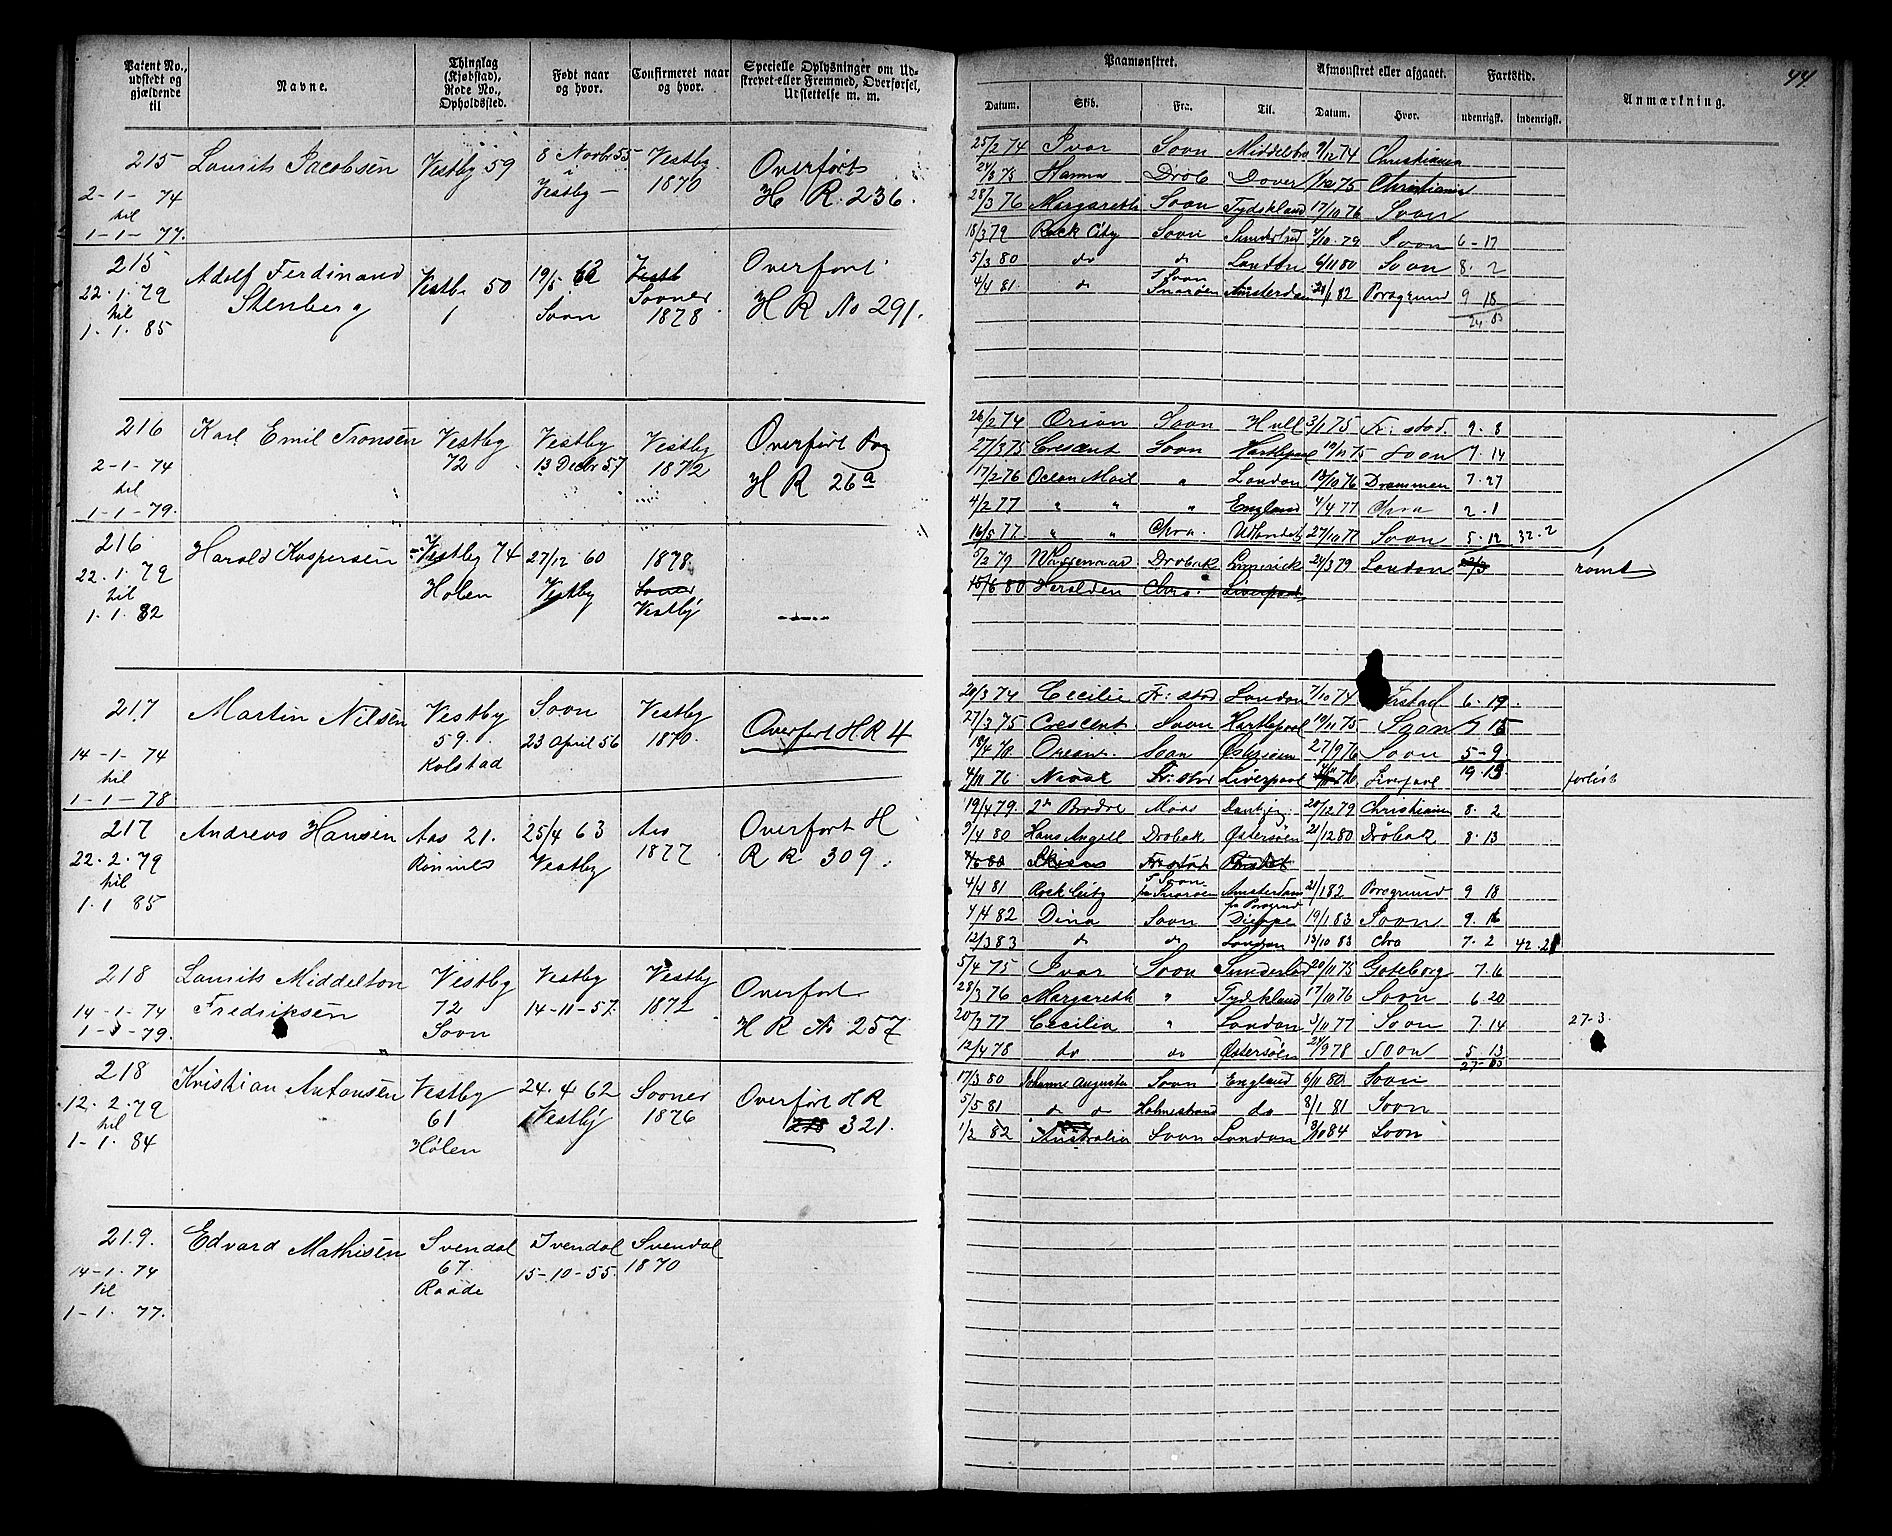 44
Patent No., udstedt og gjældende til
Navne.
Thinglag (Kjøbstad), Rode No., Opholdssted.
Født naar og hvor.
Confirmeret naar og hvor.
Specielle Oplysninger om Udskrevet eller Fremmed, Overførsel, Udslettelse m. m.
Paamønstret.
Afmønstret eller afgaaet.
Fartstid.
Anmærkning.
Datum. Skib. Fra. Til. Datum. Hvor. udenrigsk. indenrigsk.
215 Laurits Jacobsen Vestby 59 8 Novbr 55 Vestby 1870 Overført H R. 236.
2-1-74 til 1-1-77.
25/2 74 Ivar Soon 9/12 74 Christiania
Hanna Drøb Dover 75 Christiania
28/3 76 Margareth Soon Tydskland 17/10 76 Soon
215 Adolf Ferdinand Stenberg Vestb 50 19/5 62 Soon Sooner 1878 Overført H R No 291.
22.1.79 til 1.1.85
18/3 79 Rock City Soon 79 Soon 6-17
5/3 80 do do London 6/11 80 Soon 8. 2
4/4 81 d Soon Snarøen Amsterdam 21/1 82 Porsgrund 9 18
24 03
216 Karl Emil Tronsen Vestby 72 Vestby 13 Decbr 57 Vestby 1872 Overført H R 26a
2-1-74 til 1-1-79.
26/2 74 Orion Soon Hull 3/1 75 Fr: stad. 9. 8
27/3 75 Crescent Soon 19/11 75 Soon 7. 14
17/2 76 Ocean " London 76 Drammen 7. 27
4/2 77 " " " England 4/4 77 Chra 2. 1
16/5 77 " " Chra. 27/10 77 Soon 5. 12 32. 2
216 Harold Kaspersen Vestby 74 Hølen 27/12 60 Vestby 1878. Sooner Vestby
22.1.79 til 1.1.82
5/2 79 Drøbak Limerick 24/3 79 London
15/6 80 Haralden Chra. Liverpool
rømt
217 Martin Nilsen Vestby 59. Kolstad Soon 23 April 56 Vestby 1870. Overført H R 4
14-1-74 til 1-1-78
20/3 74 Cecilie Fr: stad London 7/10 74 6. 19.
27/3 75 Crescent Soon Hartlepool 19/11 75 Soon 7 15
Soon Østersøen 27/9 76 Soon 5-9
4/11 76 Fr: stad Liverpool 76 Liverpool 19. 13
forlist
217 Andreas Hansen Aas 21. Rønnes 25/4 63 Vestby Aas 1877 Overført H R R 309.
22.2.79 til 1.1 85
19/4 79. 2de Brødre Moss Dantzig 20/12 79 Christiania 8. 2
9/4 80 Hans Angell Drøbak Østersøen 21/12 80 Drøbak 8. 13
Skiens
4/4 81 Rock City Soon Snarøen Amsterdam 21/1 82 Porsgrund 9 18
4/4 82 Dina Soon Dieppe 19/1 83 Soon 9. 16
12/3 83 do do London 13/10 83 Chra 7. 2 42. 21
218 Laurits Middelton Fredriksen Vestby 72 Soon Vestby 14-11-57. Vestby 1872 Overført H R No 257
14-1-74
79.
5/4 75 Ivar Soon Sunderland 20/11 75 Gøteborg 7. 16
28/3 76 Margareth " Tydskland 17/10 76 Soon 6 20
20/3 77 Cecilia " London 3/11 77 Soon 7. 14 27-3.
12/4 78 do do Østersøen 24/9 78 Soon 5 13
27-03
218 Kristian Antonsen Vestby 61 Hølen 24. 4 62 Vestby Sooner 1876 Overført H R 321.
12.2.79 til 1-1.84
17/3 80 Johanne Augusta Soon England 6/11 80 Soon
5/5 81 do do Holmestrand do 8/1 81 Soon
1/2 82 Australia Soon London 84 Soon
219. Edvard Mathisen Svendal 67. Raade Svendal 15-10-55. Svendal 1870
14-1-74 til 1-1-77.